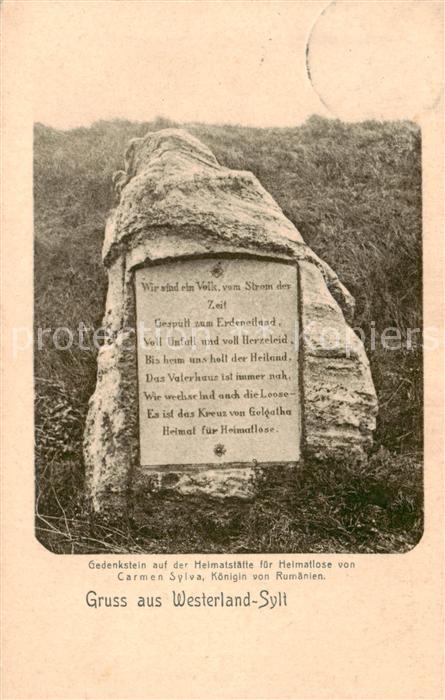 Wir sind ein Volk, vom Strom der
Zeit
Gespült zum Erdeneiland,
Voll Unfall und voll Herzeleid,
Bis heim uns holt der Heiland.
Das Vaterhaus ist immer nah,
Wie wechselnd auch die Loose–
Es ist das Kreuz von Golgatha
Heimat für Heimatlose.
Gedenkstein auf der Heimatstätte für Heimatlose von
Carmen Sylva, Königin von Rumänien.
Gruss aus Westerland-Sylt